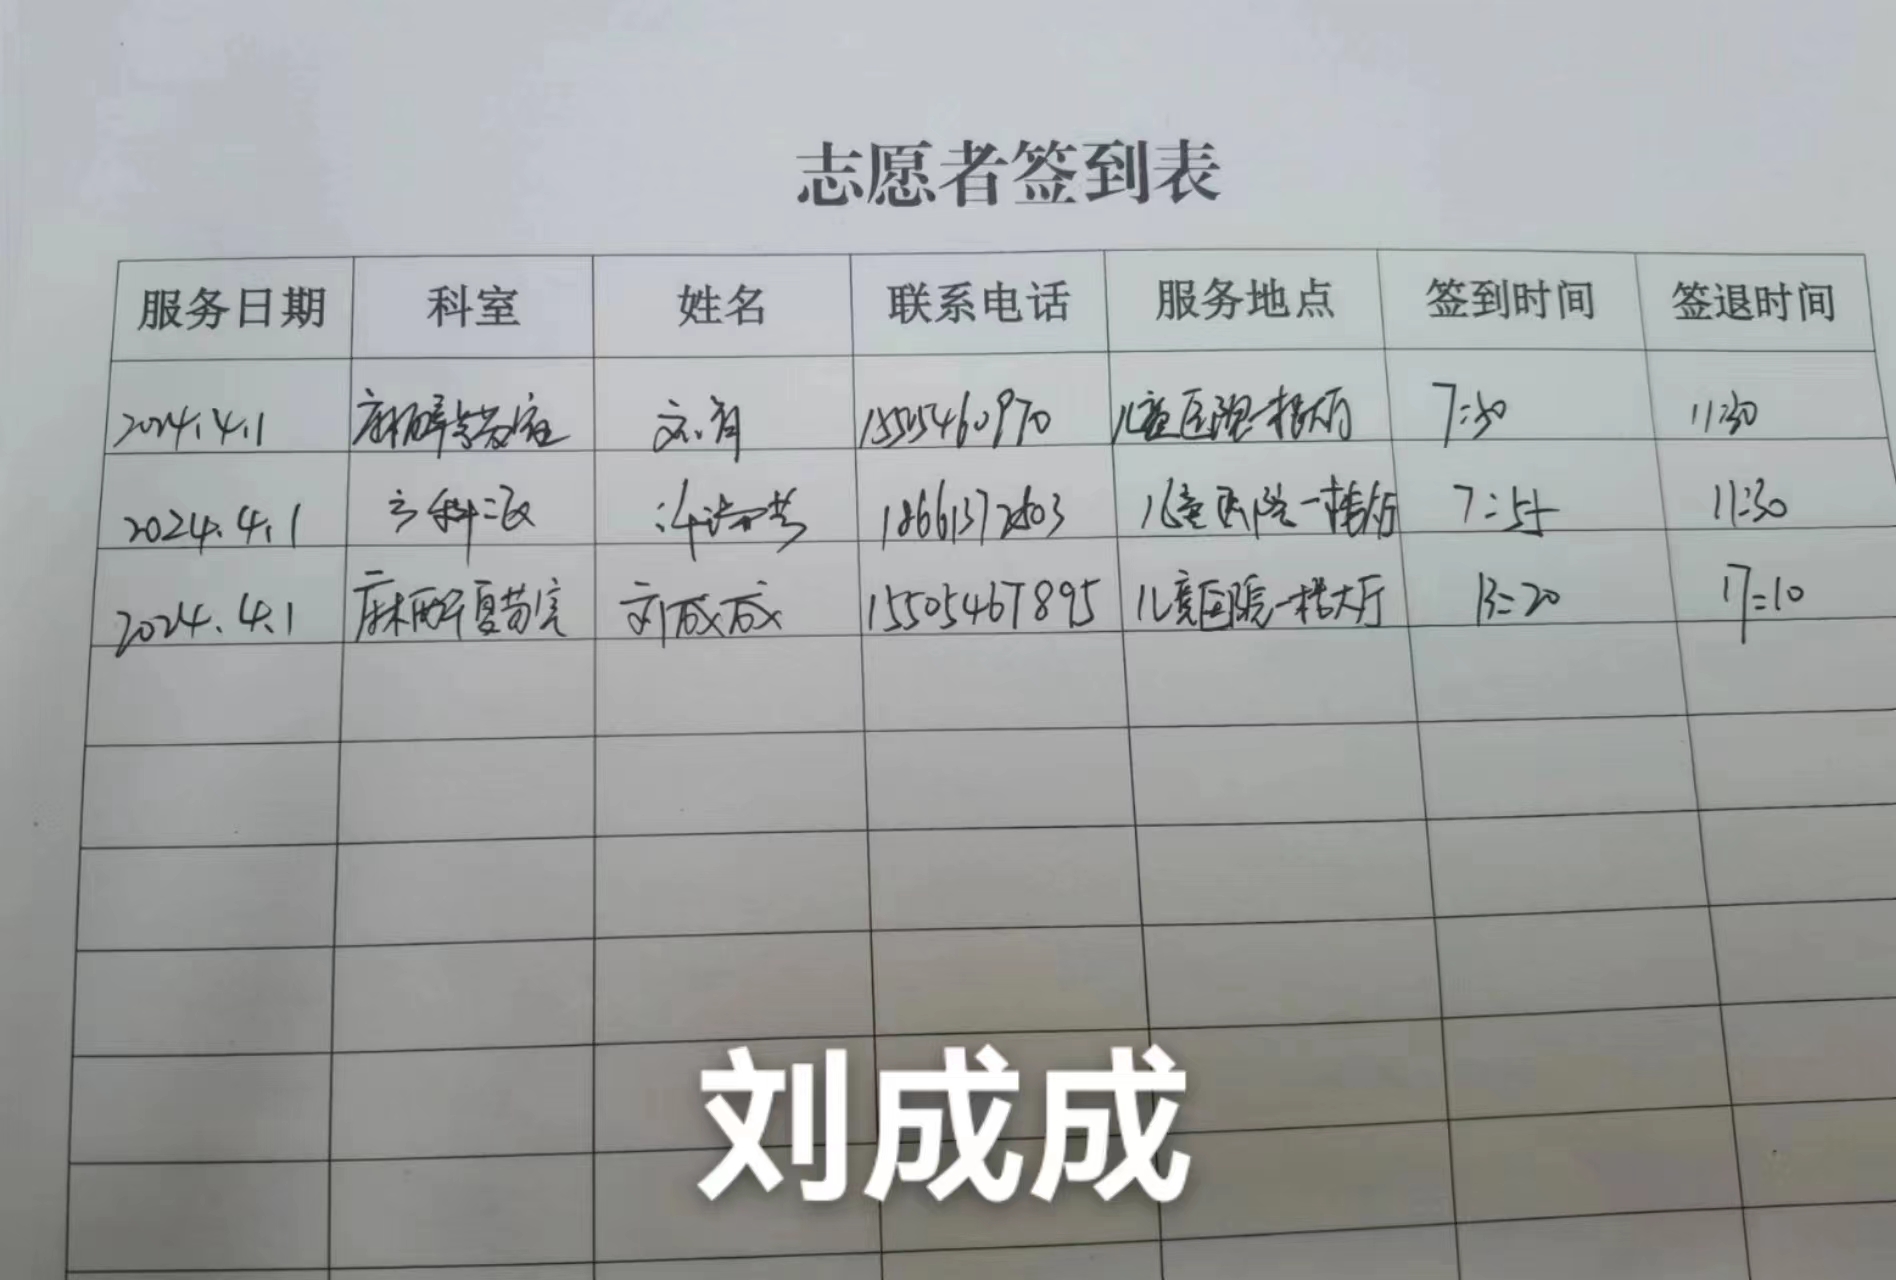 志愿者签到表
服务日期 科室 姓名 联系电话 服务地点 签到时间 签退时间
2024.4.1 麻醉复苏室 15505460970 儿童医院一楼大厅 7:30 11:30
2024.4.1 18661372603 儿童医院一楼大厅 7:55 11:30
2024.4.1 麻醉复苏室 刘成成 15505467895 儿童医院一楼大厅 13:20 17:10
刘成成